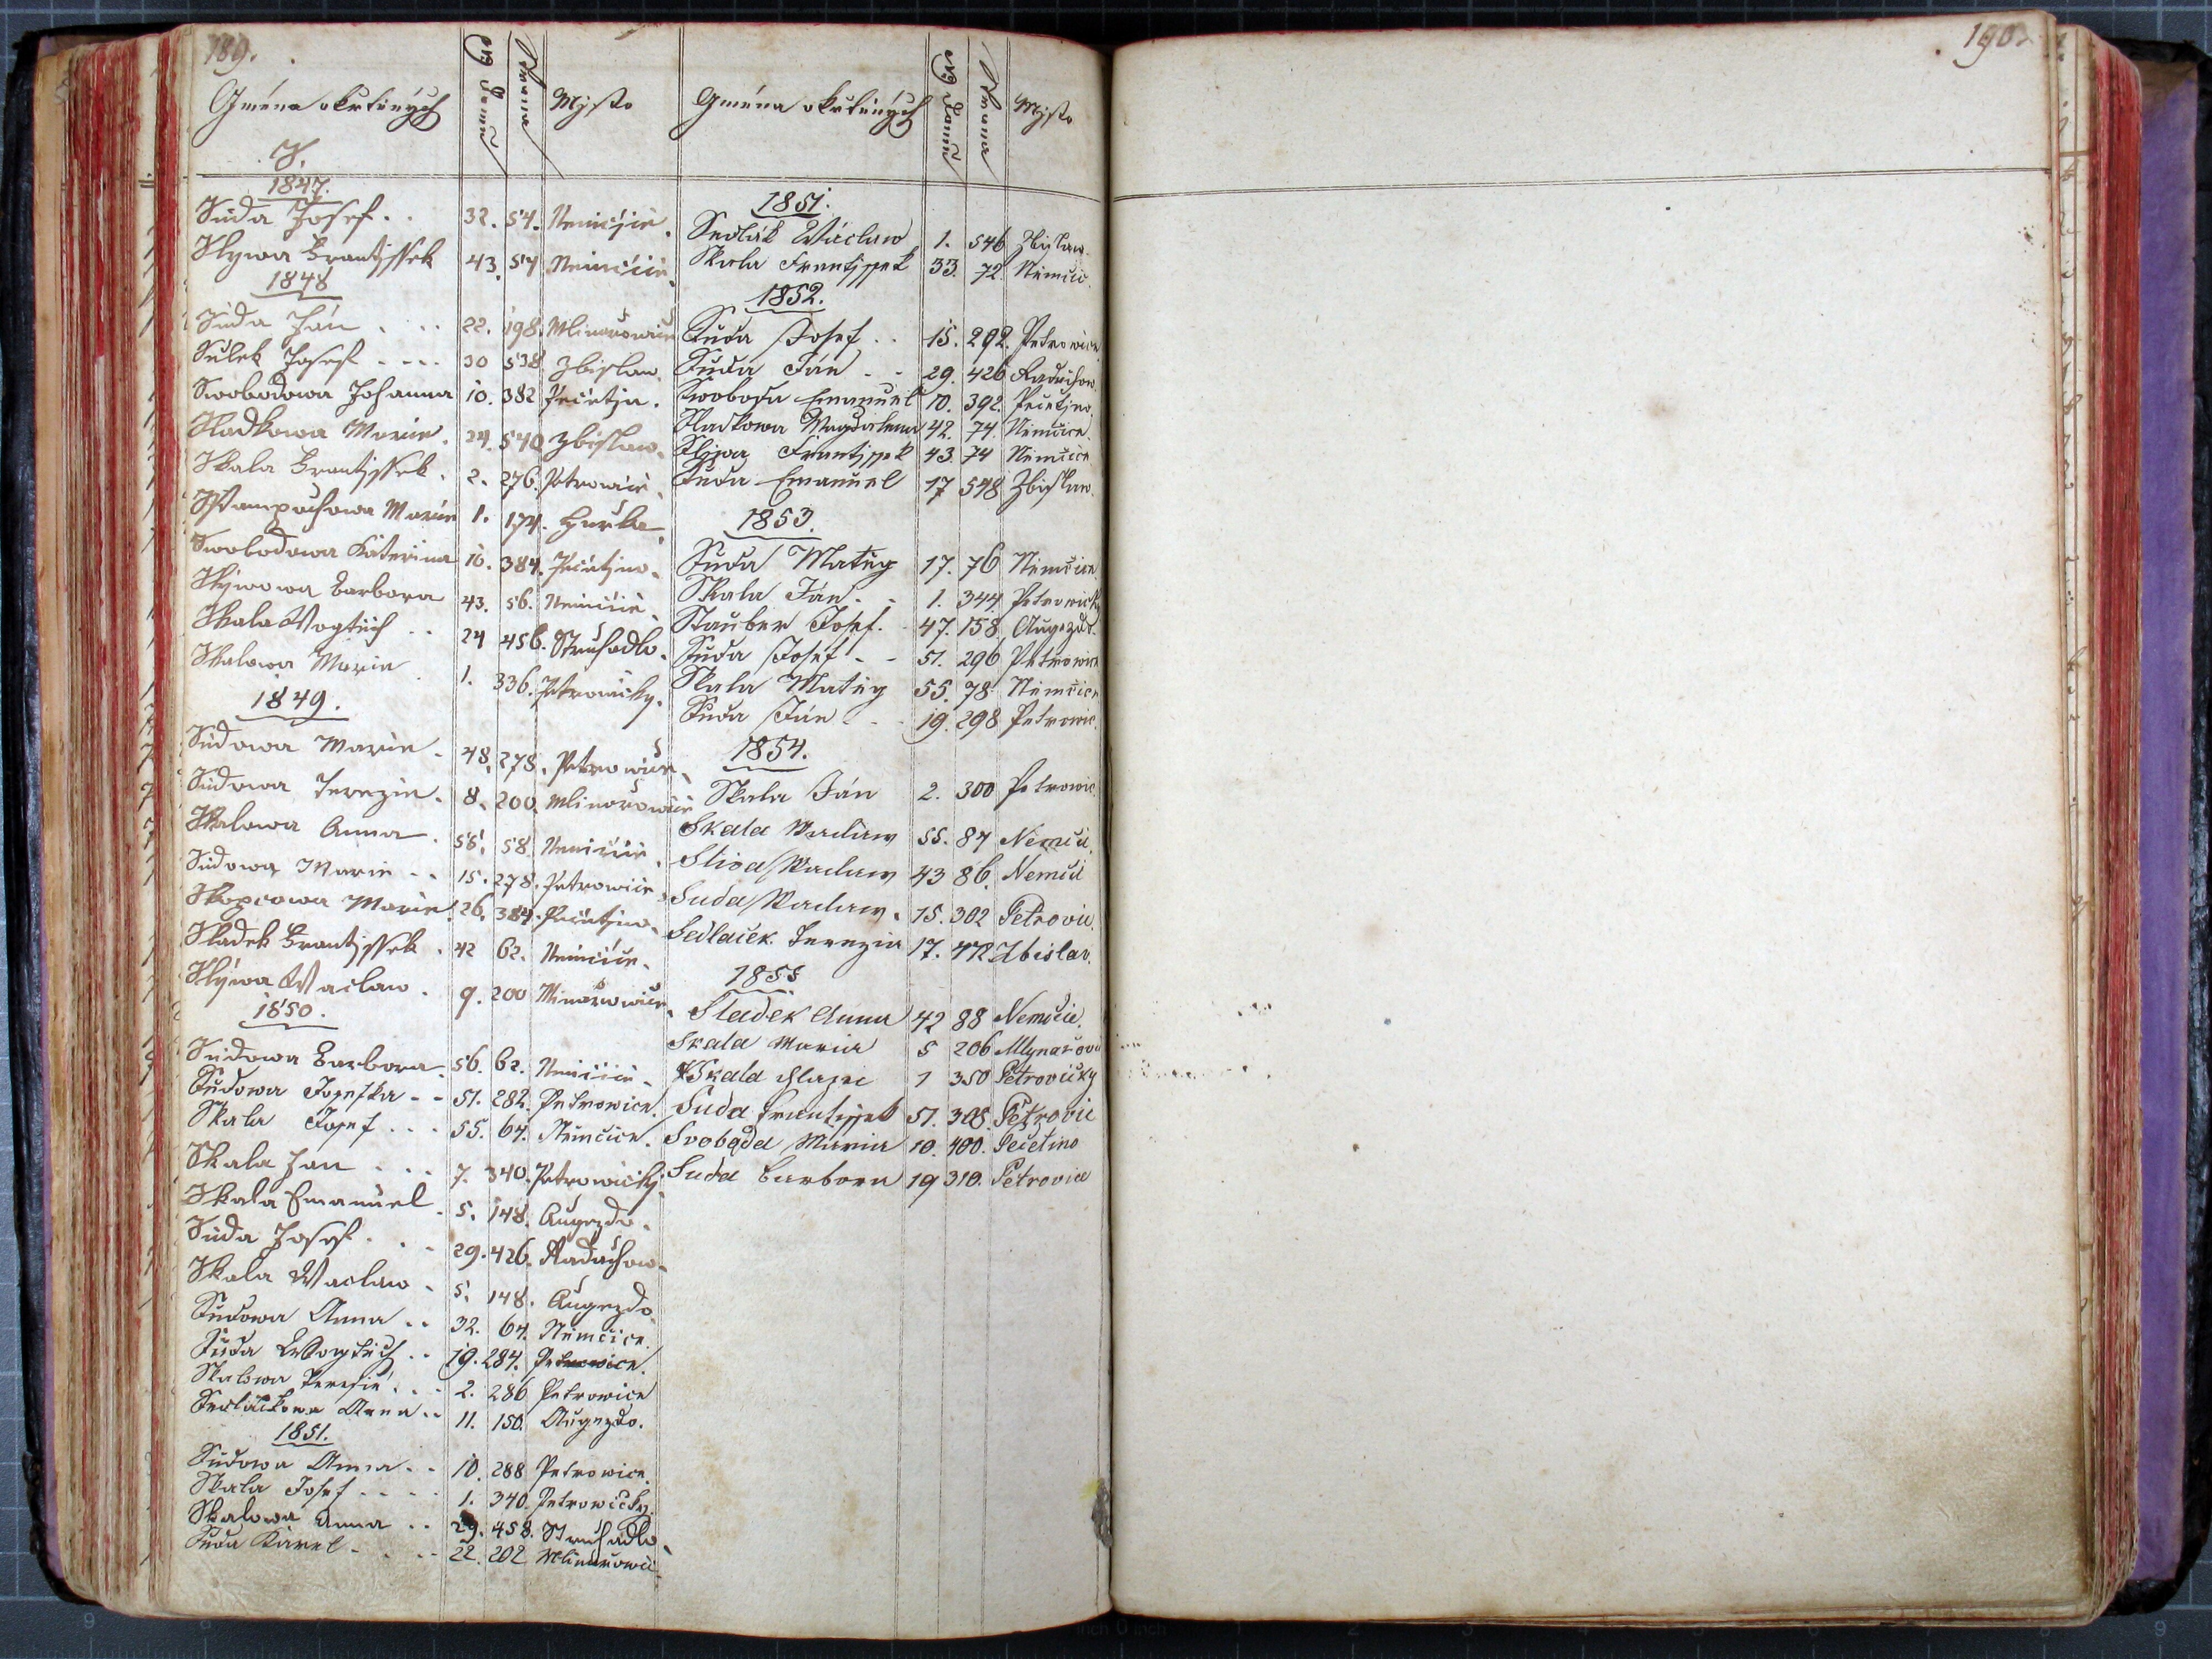 189.
Gména okrtěných
Nº Domu
Strana
Mjsto
S.
1847.
Suda Josef . . 32. 54. Nemčice.
Slywa Frantjssek 43. 54 Nemčice.
1848
Suda Ján . . . 22. 198. Mlinarowice
Sulek Josef . . . . 30 538 Zbislaw.
Swobodowa Johanna 10. 382 Pečetjn.
Sladkowa Marie. 24. 540 Zbislaw.
Skala Frantjssek. 2. 276. Petrowic.
Stampachowa Marie 1. 174. Hurka.
Swobodowa Katerina 10. 384. Pečetjno.
Slywowa Barbora 43. 56. Nemčice.
Skala Wogtěch . . 24 456. Struhadlo.
Skalowa Marie . 1. 336. Petrowičky.
1849.
Sudowa Marie - 48. 278. Petrowice.
Sudowa Terezie. 8. 200. Mlinarowice
Skalowa Anna . 55. 58 Nemčice.
Sudowa Marie - . 15. 278. Petrowice.
Skopcowa Marie. 26. 384. Pečetjno.
Sladek Frantjssek . 42 62. Nemčice.
Slýwa Waclaw . 9. 200 Mlinarowice.
1850.
Sudowa Barbora. 56. 62. Nemčice.
Sudowa Josefka - - 51. 282. Petrowice.
Skala Josef . . . 55. 64. Nemčice.
Skala Jan . . . . 7. 340. Petrowičky.
Skala Emanuel . 5. 148. Augezdo.
Suda Josef . . . 29. 426. Raduchow.
Skala Waclaw . 5. 148. Augezdo
Sudowa Anna . . 32. 64. Nemčice.
Suda Wogtěch . . 19. 284. Petrowice.
Skalowa Teresie . . . 2. 286 Petrowice
Sedláčkowa Anna . . 11. 150. Augezdo.
1851.
Sudowa Anna . . 10. 288 Petrowice.
Skala Josef . . . . 1. 340. Petrowičky.
Skalowa Anna . . 29. 458. Struhadlo.
Suda Karel - . . . 22. 202 Mlinarowic
Gména okrtěných
Nº Domu
Strana
Mjsto
1851.
Sedlák Wáclaw 1. 546 Zbislaw.
Skala Frantjssek 33. 72. Nemčic.
1852.
Suda Josef . . 15. 292. Petrowice
Suda Ján . - 29. 426 Raduchow.
Swoboda Emanuel 10. 392. Pečetjno.
Sladkowa Magdalena 42. 74. Nemčice.
Slywa Frantjssek 43. 74 Nemčice
Suda Emanuel 17 548 Zbislaw.
1853.
Suda Matěg 17. 76 Nemčice
Skala Ján . - 1. 344. Petrowičky
Stauber Josef. 47. 158. Augezdo.
Suda Josef - - 51. 296 Petrowice
Skala Matěg 55. 78. Nemčice
Suda Ján - - 19. 298 Petrowic.
1854.
Skala Ján 2. 300 Petrowic.
Skala Waclaw 55. 84 Nemčic.
Sliva Waclaw 43 86. Nemčic
Suda Waclaw . 15. 302 Petrovic.
Sedlaček Terezia 17. 472 Zbislav.
1855
Sladek Anna 42 88 Nemčic.
Skala Maria 5 206 Mlynařovi
Skala Blažei 1 350 Petrovičky
Suda Frantissek 51. 308. Petrovic
Svoboda Maria 10. 400. Pečetino
Suda Barbora 19 310. Petrovice
190.